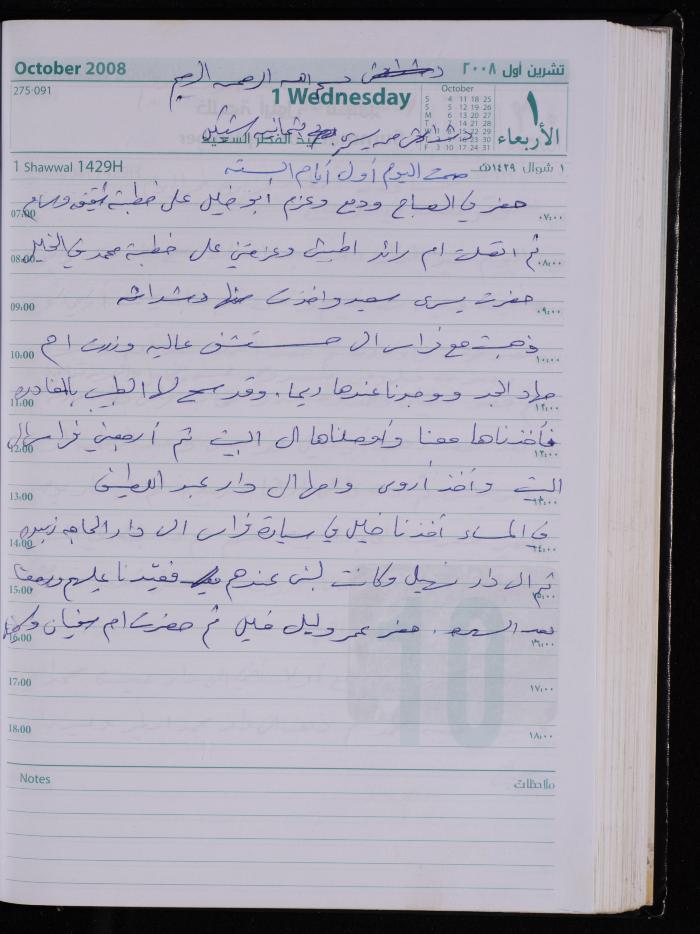 October 2008
تشرين أول ٢٠٠٨
بسم الله الرحمن الرحيم
275-091
1 Wednesday
October
S 4 11 18 25
S 5 12 19 26
M 6 13 20 27
T 7 14 21 28
W 1 8 15 22 29
T 2 9 16 23 30
F 3 10 17 24 31
١
الأربعاء
عيد الفطر السعيد
من يسرى بثمانية شيكل
1 Shawwal 1429H
١ شوال ١٤٢٩هـ
صمت اليوم أول أيام الستة
حضر في الصباح وديع وعزم ابو خليل على خطبة
07:00 ٠٧:٠٠
ثم اتصلت ام رائد اطبيش وعزمتني على خطبة محمد في الخليل
08:00 ٠٨:٠٠
حضرت يسرى سعيد واخذت
09:00 ٠٩:٠٠
ذهبت مع فراس الى مستشفى عاليه وزرت ام
10:00 ١٠:٠٠
جهاد الجد ووجدنا عندها ريما. وقد سمح لها الطبيب بالمغادرة
11:00 ١١:٠٠
فأخذناها معنا وأوصلناها الى البيت ثم أرجعني فراس الى
12:00 ١٢:٠٠
البيت وأخذ أروى وامها الى دار عبد اللطيف
13:00 ١٣:٠٠
في المساء أخذنا خليل في سيارة فراس الى دار الحاجه
14:00 ١٤:٠٠
ثم الى دار نهيل وكانت لبنى عندهم فعيّدنا عليهم ورجعنا
15:00 ١٥:٠٠
بعد السهرة. حضر عمر وليل خليل ثم حضرت ام سفيان
16:00 ١٦:٠٠
17:00 ١٧:٠٠
18:00 ١٨:٠٠
10
Notes
ملاحظات